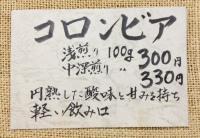 コロンビア
浅煎り 100g 300円
中深煎り 〃 330円
円熟した酸味と甘みを持ち
軽い飲み口